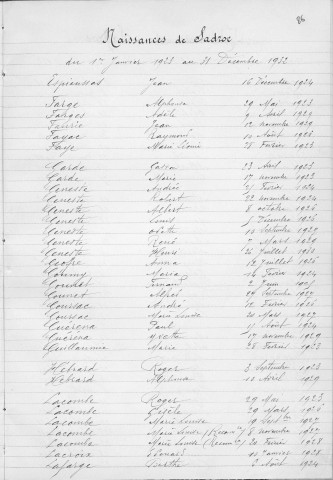 86
Naissances de Sadroc
du 1er Janvier 1923 au 31 Décembre 1932
Espinassas Jean 16 Décembre 1924
Farge Alphonse 29 Mai 1923
Farges Adèle 9 Avril 1929
Faurie Jean 12 novembre 1929
Fayac Raymond 10 Août 1926
Faye Marie Léonie 28 Février 1923
Garde Gaston 23 Avril 1923
Garde Marie 17 novembre 1923
Geneste Andrée 21 Février 1924
Geneste Robert 22 novembre 1924
Geneste Albert 8 octobre 1926
Geneste Décembre 1926
Geneste Odette Septembre 1927
Geneste René 7 Mars 1929
Geneste Henri Juillet 1930
Anna Juillet 1926
Maria 14 Février 1924
2 Juin
Alfred Septembre 1927
Coussac André Février 1926
Coussac Marie Louise 20 Mars 1927
Paul 11 Août 1924
Yvette 17 novembre 1929
Guillaumie Marie 28 Février 1923
Hébrard Roger 3 Septembre 1923
Hébrard Alphonse 12 Avril 1929
Lacombe Roger 29 Mai 1923
Lacombe Gisèle 29 Mars 1926
Lacombe Marie Louise 19 Septbre 1927
Lacombe Marie Louise (Reconn) 8 novembre 1927
Lacombe Marie Louise (Reconn) 20 Février 1928
Lacroix 11 Janvier 1928
Lafarge Berthe 3 Août 1924